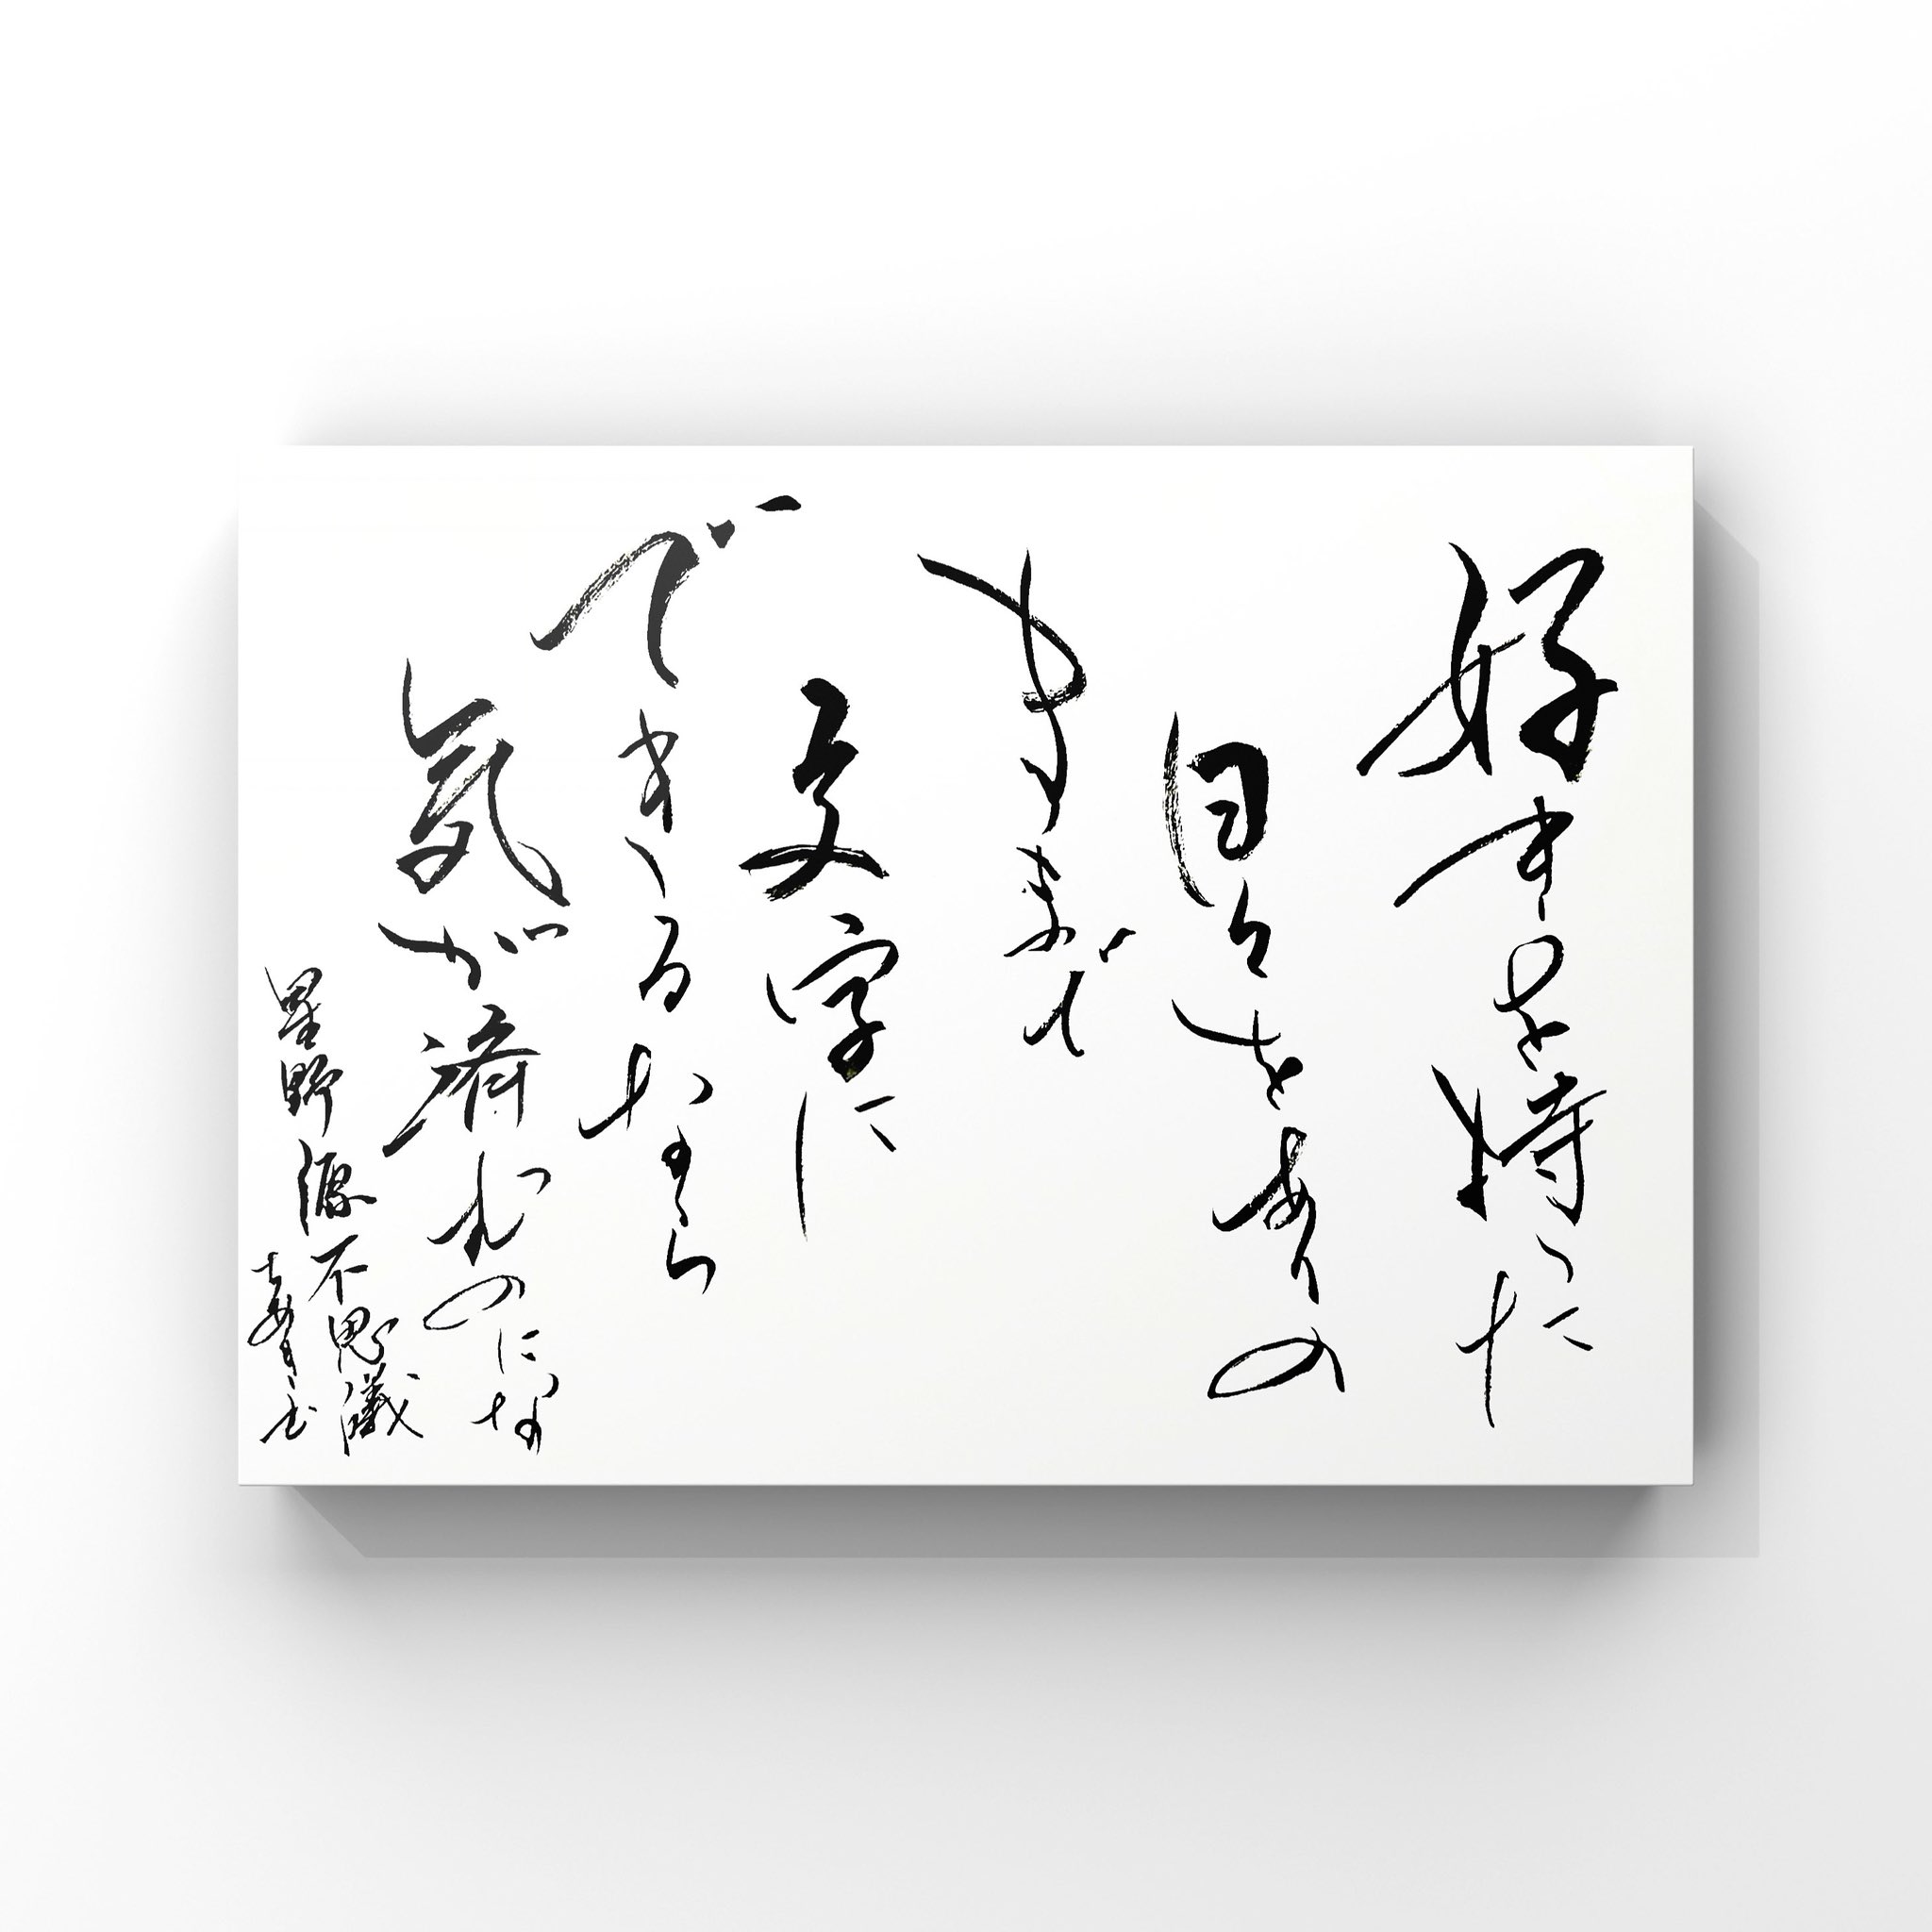 好きを持った
日々をありの
ままで
文字に
できるなら
気が済むのにな
星野源 不思議